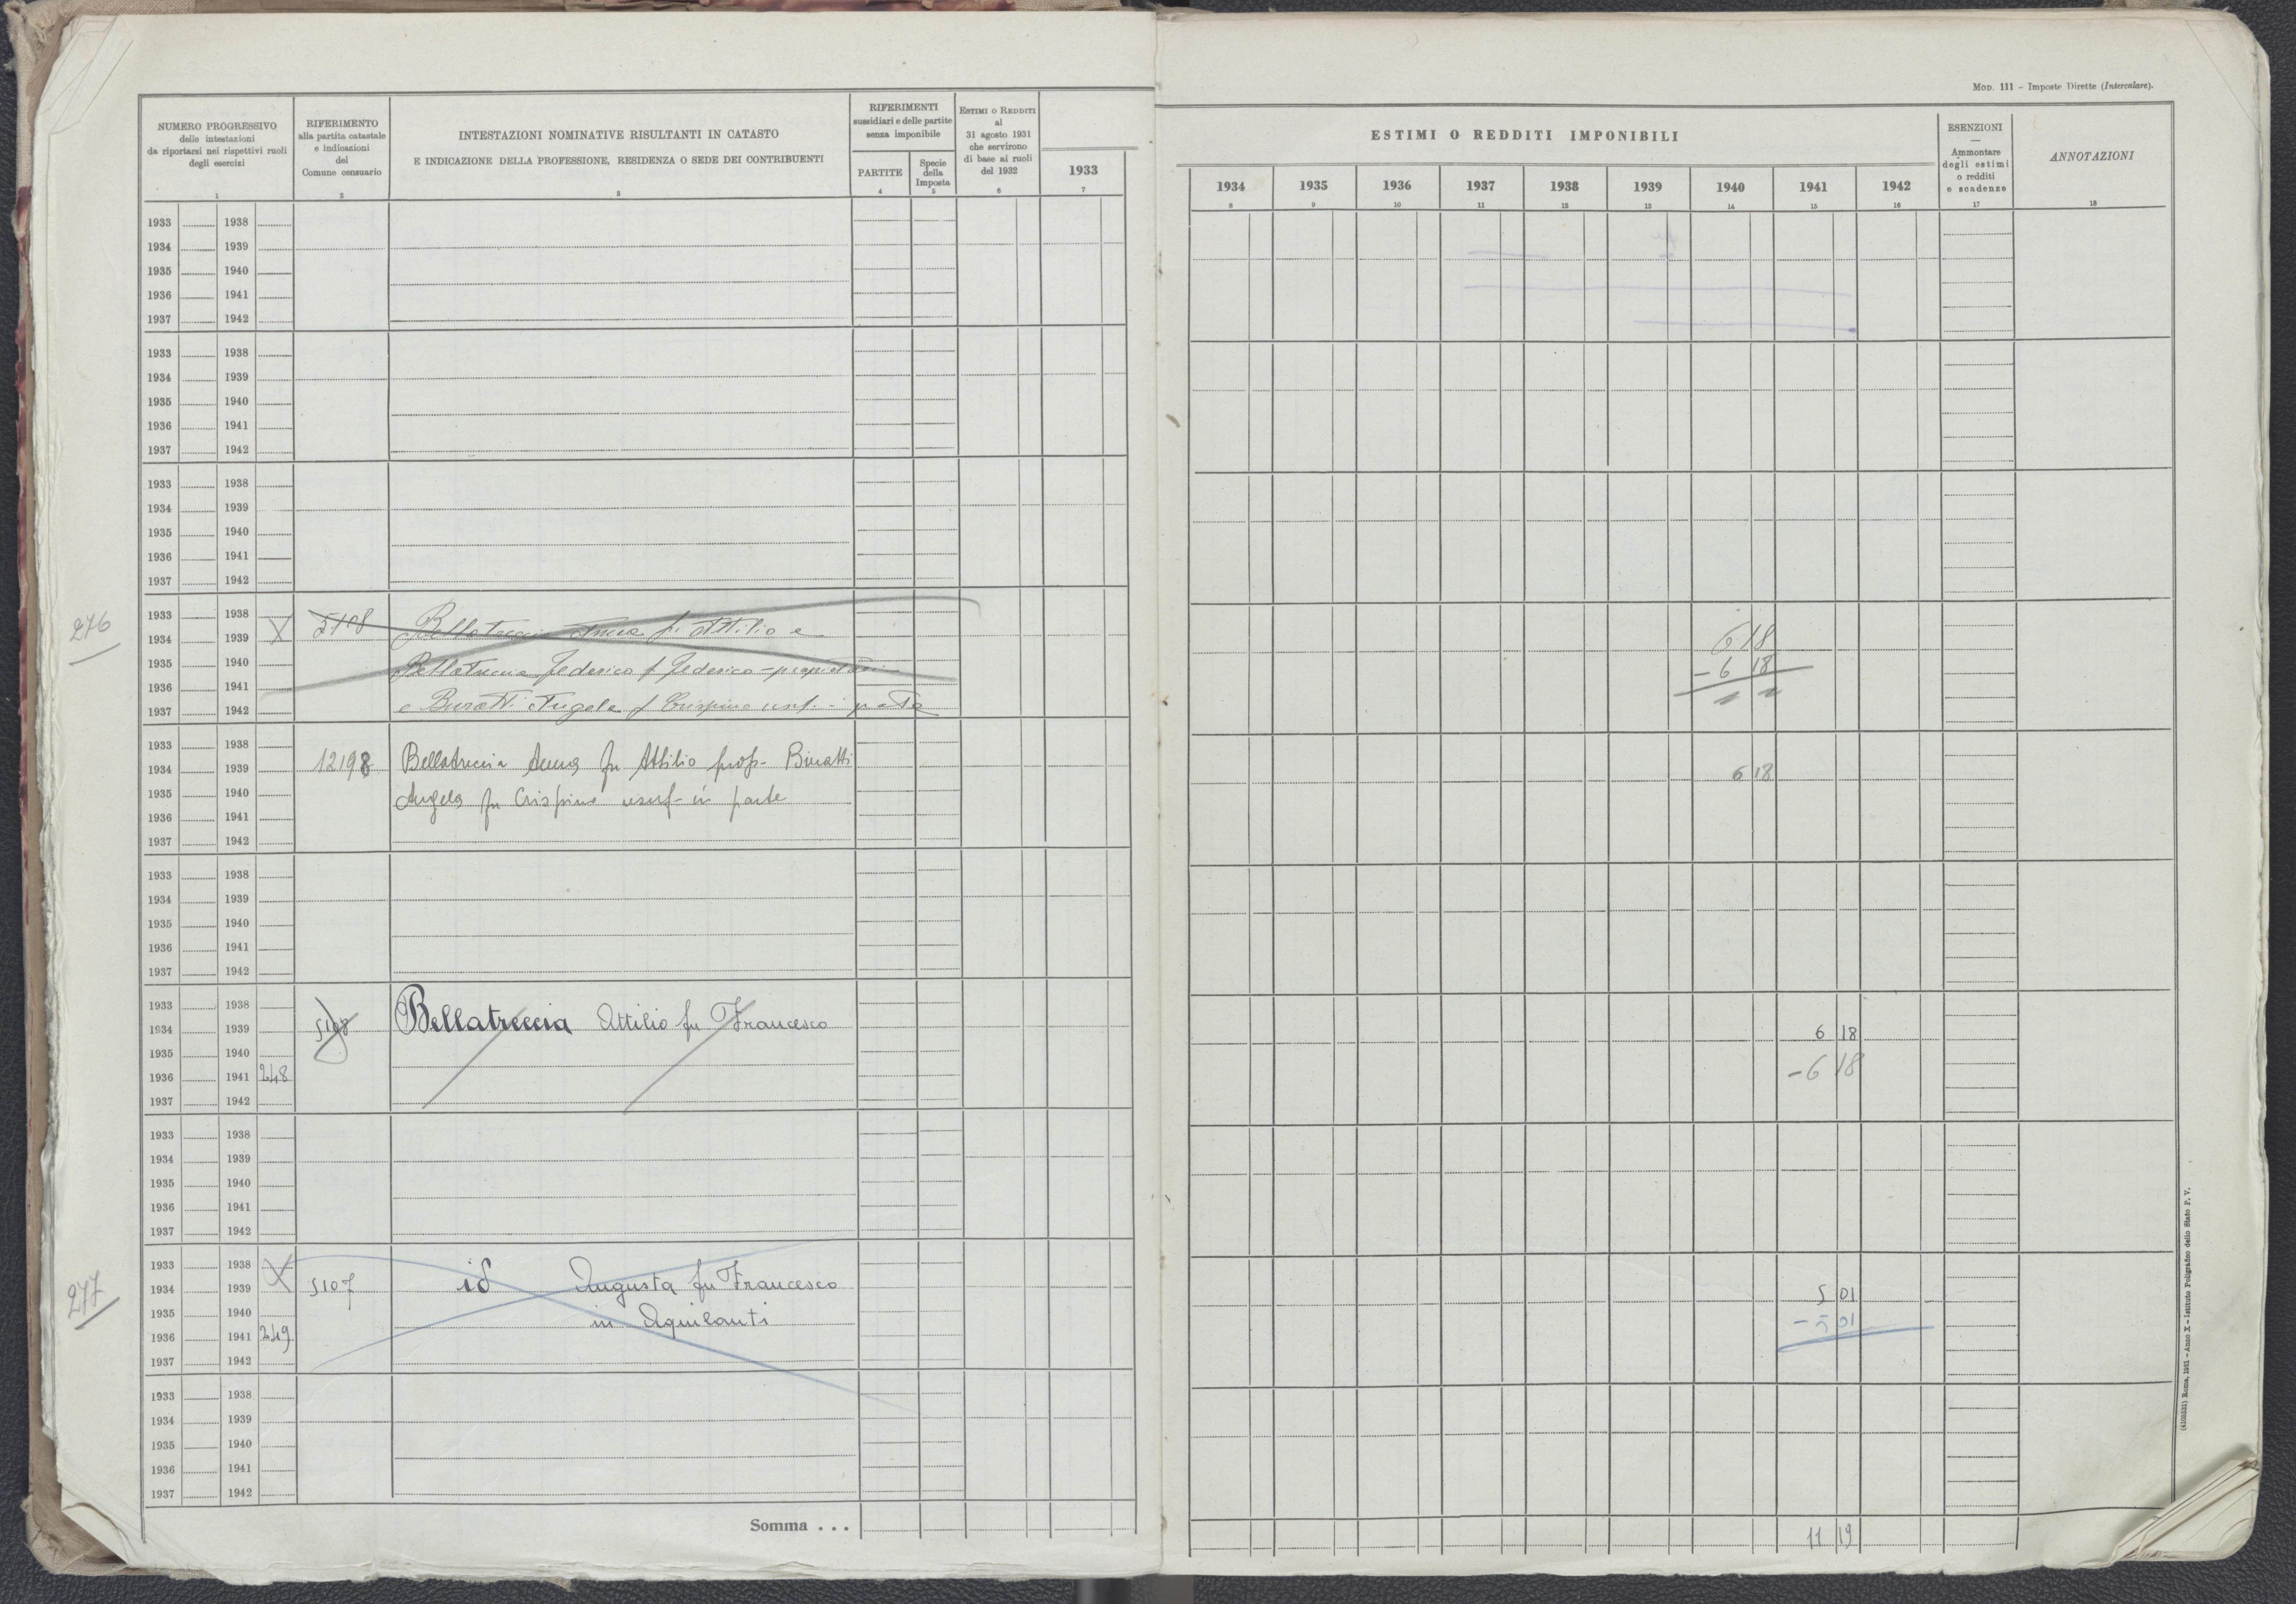 Mod. 111 - Imposte Dirette (Intercalare).
NUMERO PROGRESSIVO
delle intestazioni
da riportarsi nei rispettivi ruoli
degli esercizi
1
RIFERIMENTO
alla partita catastale
e indicazioni
del
Comune censuario
2
INTESTAZIONI NOMINATIVE RISULTANTI IN CATASTO
E INDICAZIONE DELLA PROFESSIONE, RESIDENZA O SEDE DEI CONTRIBUENTI
3
RIFERIMENTI
sussidiari e delle partite
senza imponibile
PARTITE
4
Specie
della
Imposta
5
Estimi o Redditi
al
31 agosto 1931
che servirono
di base ai ruoli
del 1932
6
1933
7
ESTIMI O REDDITI IMPONIBILI
1934 1935 1936 1937 1938 1939 1940 1941 1942
8 9 10 11 12 13 14 15 16
ESENZIONI
Ammontare
degli estimi
o redditi
e scadenze
17
ANNOTAZIONI
18
1933 1938
1934 1939
1935 1940
1936 1941
1937 1942
1933 1938
1934 1939
1935 1940
1936 1941
1937 1942
1933 1938
1934 1939
1935 1940
1936 1941
1937 1942
276
1933 1938
1934 1939 X 5108 Bellatreccia Anna fu Attilio e 6 18
1935 1940 Bellatreccia Federico f Federico - proprietari - 6 18
1936 1941
1937 1942 e Buratti Angela f Crispino usuf. - parte
1933 1938
1934 1939 12198 Bellatreccia Anna fu Attilio prop- Buratti 6 18
1935 1940 Angela fu Crispino usuf- in parte
1936 1941
1937 1942
1933 1938
1934 1939
1935 1940
1936 1941
1937 1942
1933 1938
1934 1939 5108 Bellatreccia Attilio fu Francesco 6 18
1935 1940
1936 1941 248 - 6 18
1937 1942
1933 1938
1934 1939
1935 1940
1936 1941
1937 1942
277
1933 1938 X
1934 1939 5107 id Augusta fu Francesco 5 01
1935 1940 in Aquilanti - 5 01
1936 1941 249
1937 1942
1933 1938
1934 1939
1935 1940
1936 1941
1937 1942
Somma . . . 11 19
(4103531) Roma, 1931 - Anno X - Istituto Poligrafico dello Stato P. V.